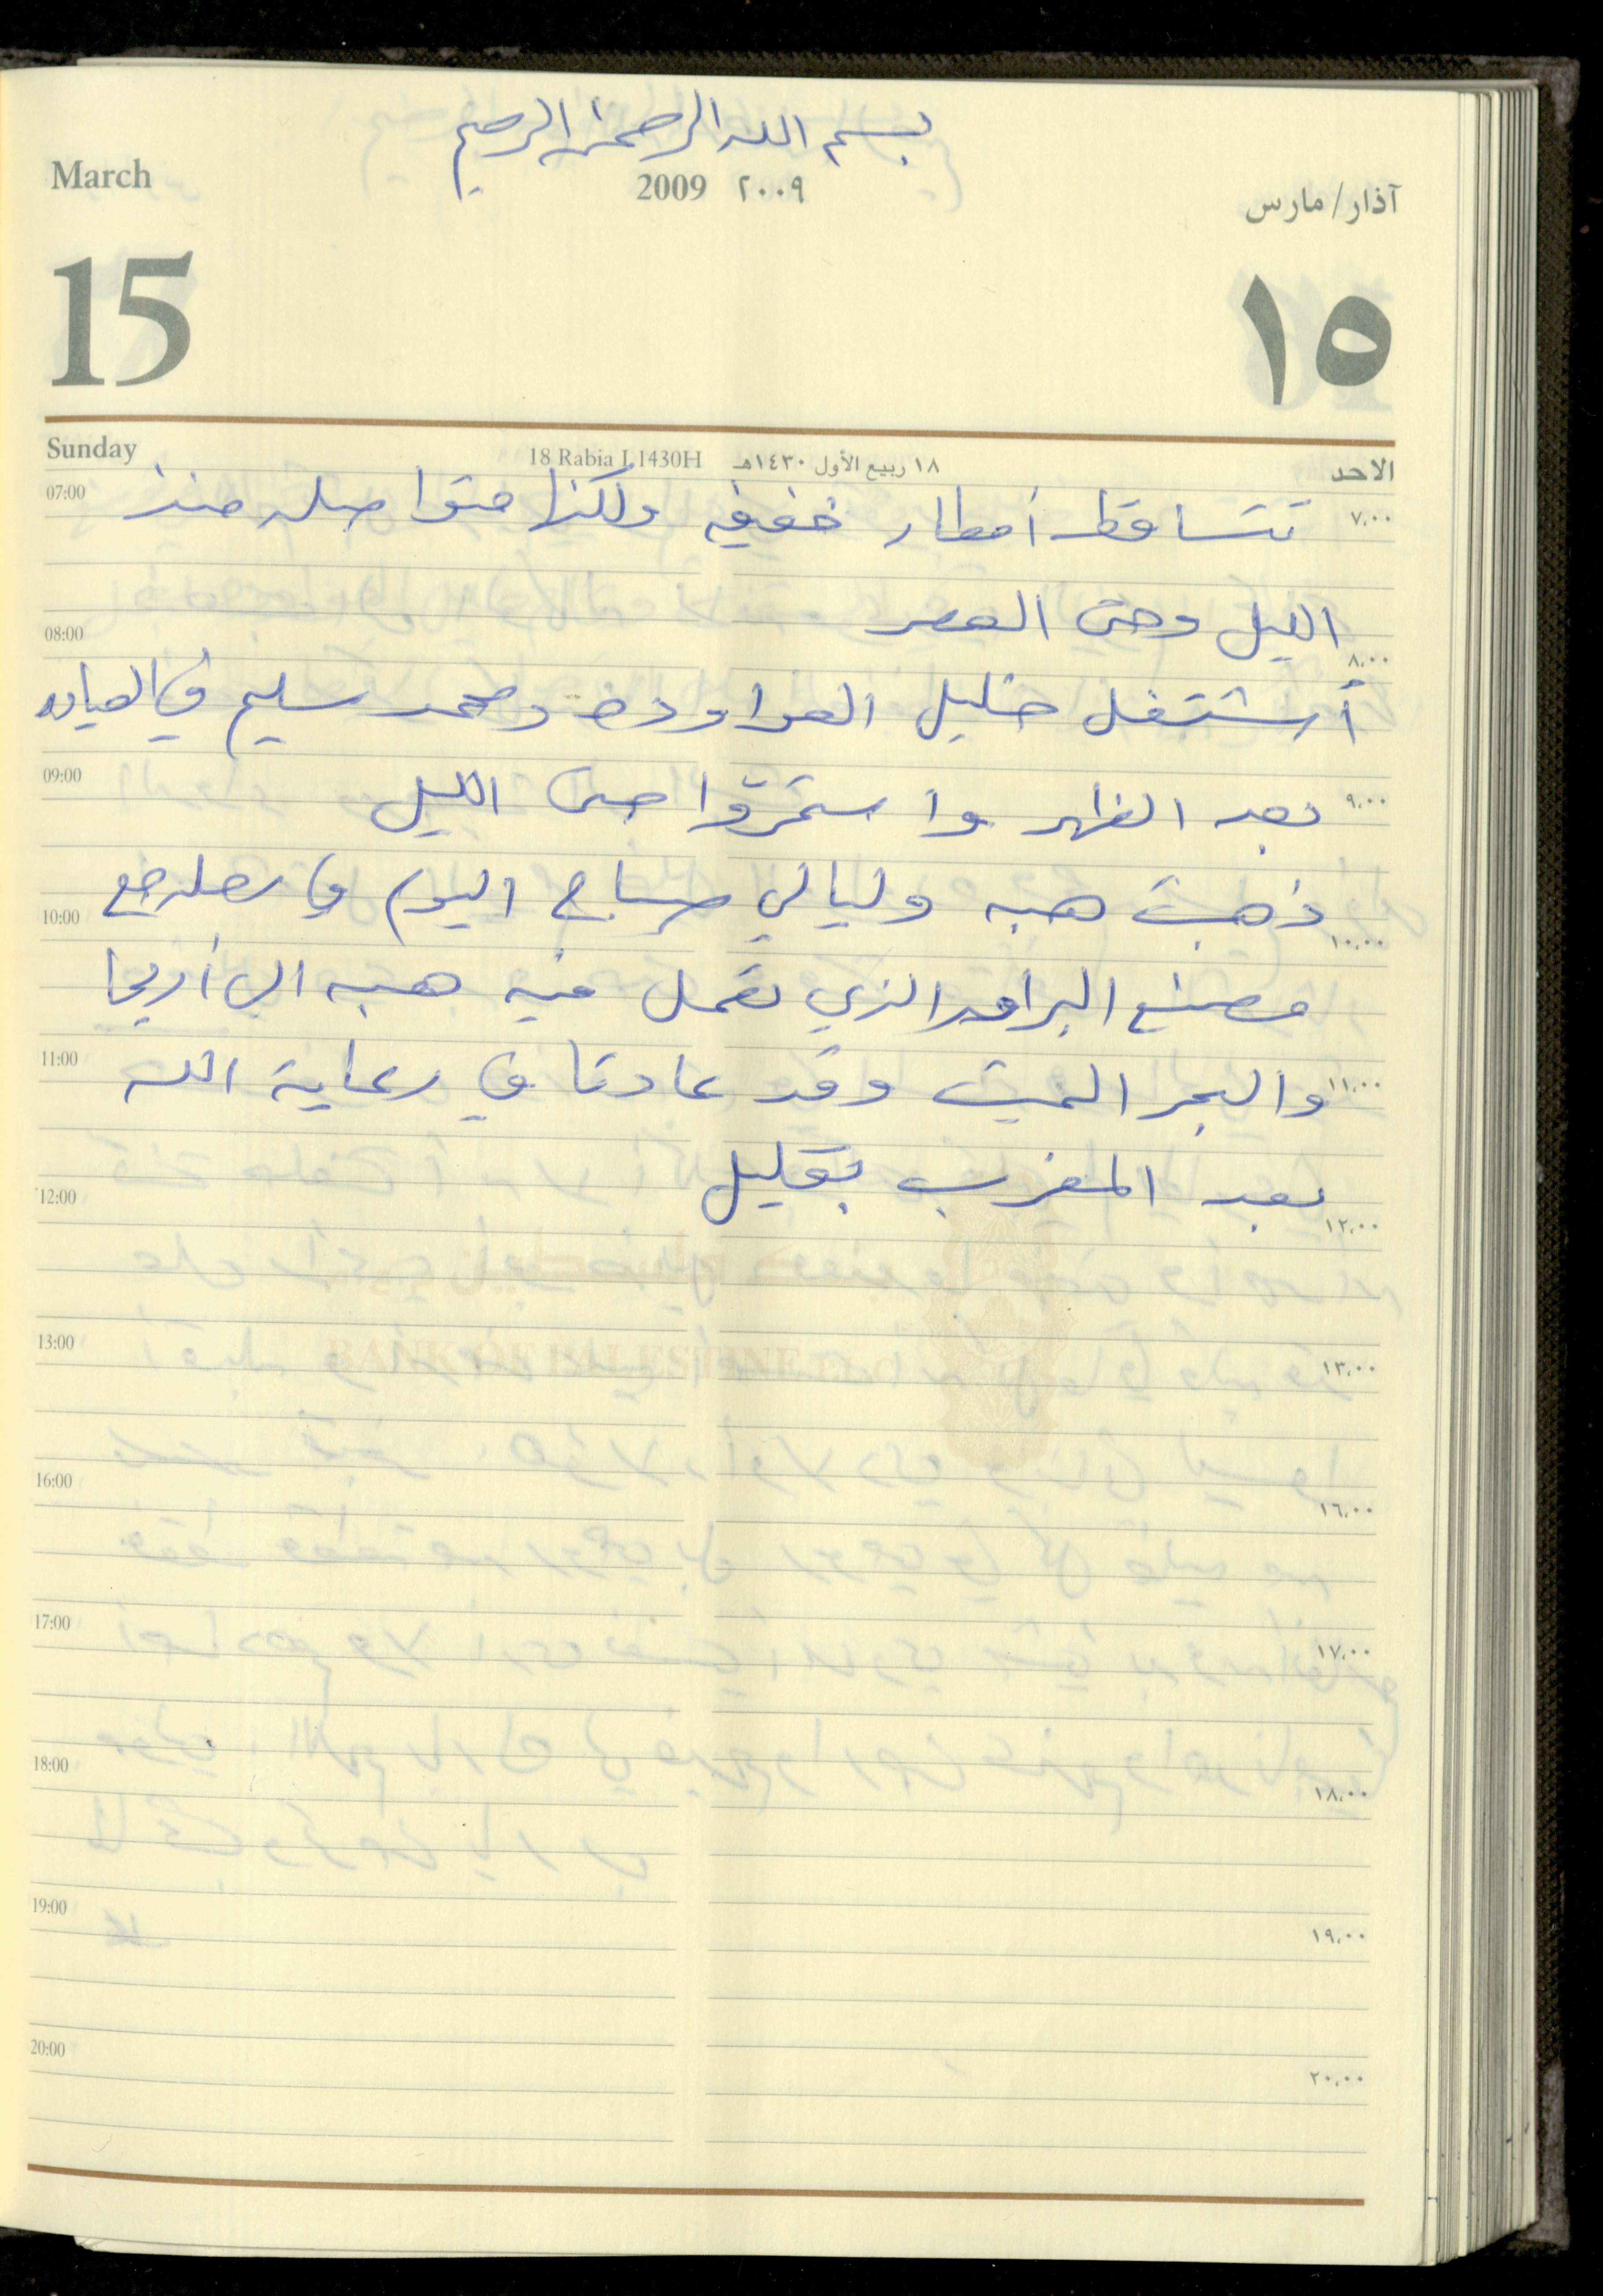 بسم الله الرحمن الرحيم
March 2009 ٢٠٠٩ آذار/مارس
15 ١٥
Sunday 18 Rabia I 1430H ١٨ ربيع الأول ١٤٣٠هـ الاحد
07:00 تتساقط أمطار خفيفه ولكنها متواصله منذ ٧,٠٠
الليل وحتى العصر
08:00 ٨,٠٠
أشتغل خليل العواوده ومحمد سليم في العياده
09:00 بعد الظهر واستمروا حتى الليل ٩,٠٠
10:00 ذهبت هبه وليالي صباح اليوم في رحله مع ١٠,٠٠
مصنع البرادي الذي تعمل فيه هبه الى أريحا
11:00 والبحر الميت وقد عادتا في رعاية الله ١١,٠٠
بعد المغرب بقليل
12:00 ١٢,٠٠
BANK OF PALESTINE
13:00 ١٣,٠٠
16:00 ١٦,٠٠
17:00 ١٧,٠٠
18:00 ١٨,٠٠
19:00 ١٩,٠٠
20:00 ٢٠,٠٠